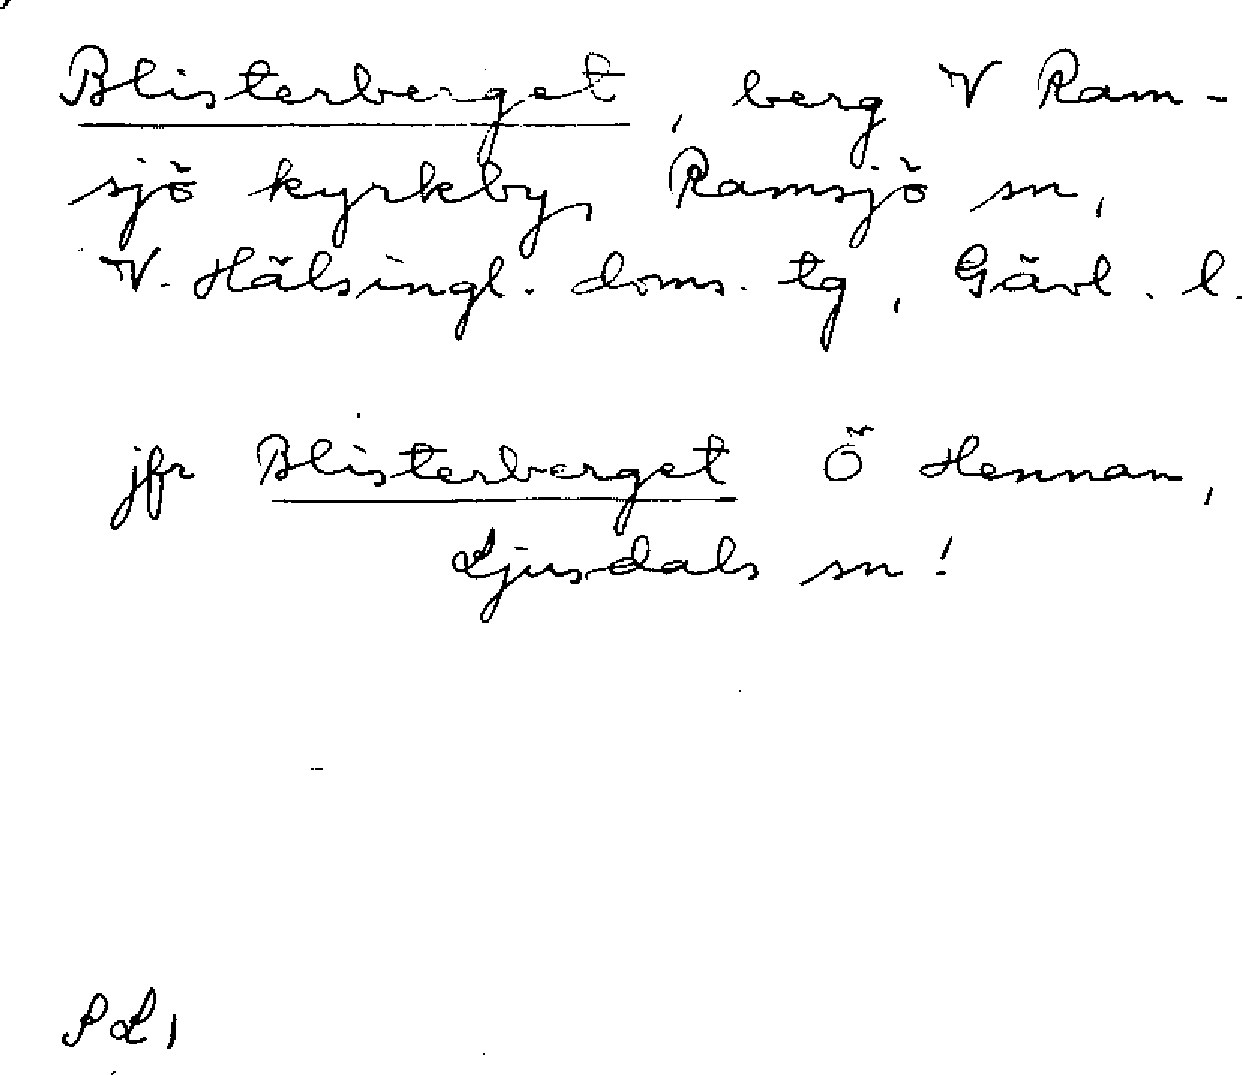 Blisterberget, berg V Ram-
sjö kyrkby, Ramsjö sn,
V. Hälsingl. doms. tg, Gävl. l.
jfr Blisterberget Ö Hennan,
Ljusdals sn!